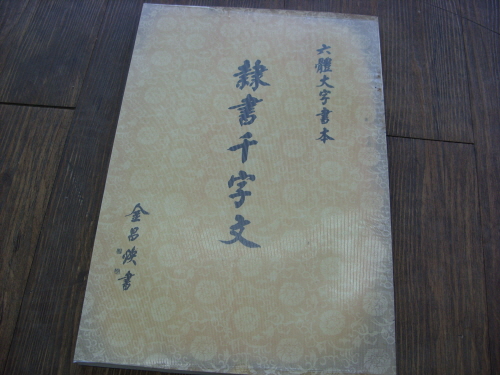 六體大字書本
隸書千字文
金呂煐書